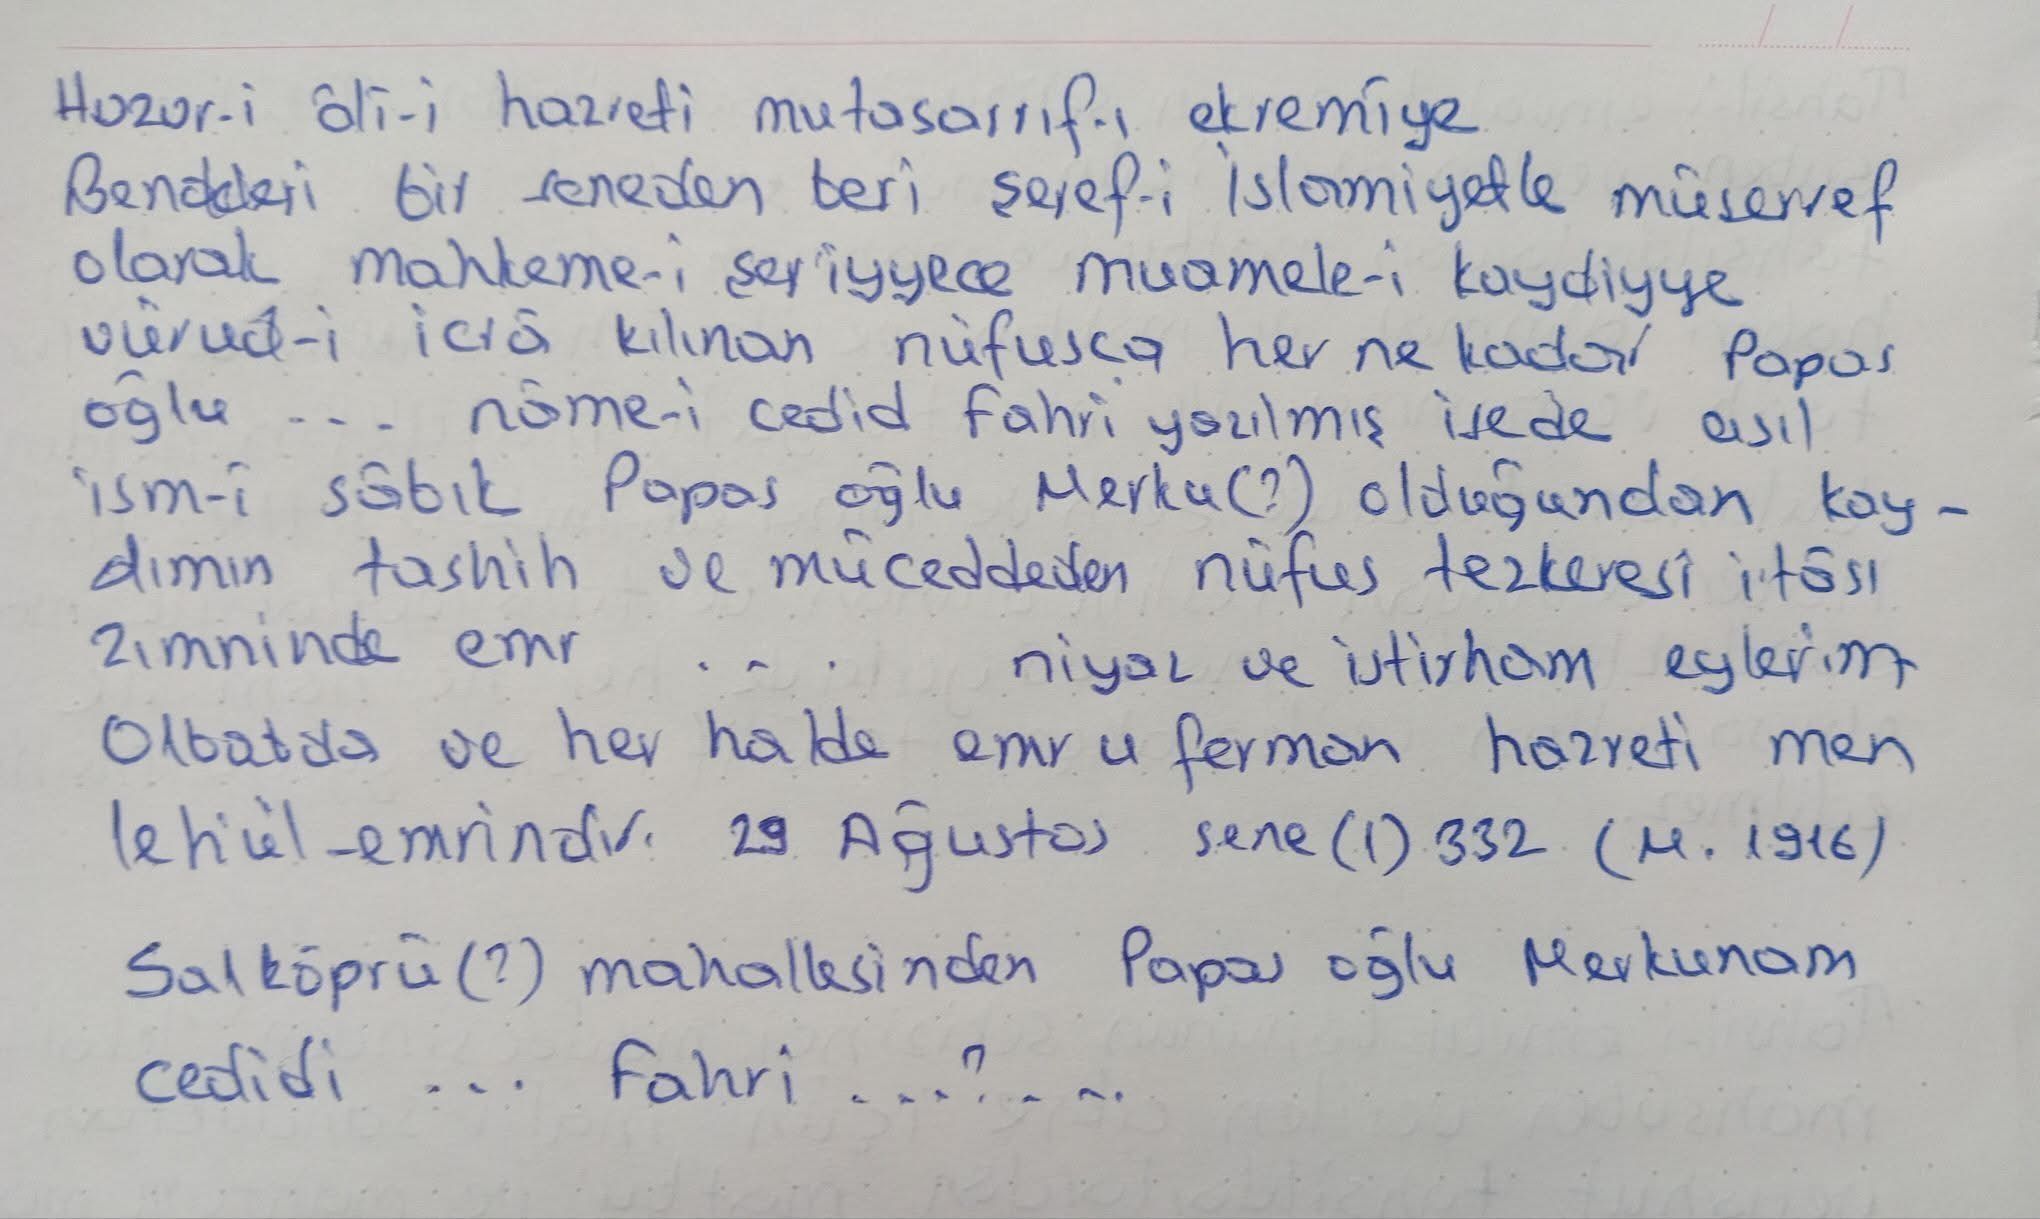 Huzur-i âlî-i hazreti mutasarrıf-ı ekremîye
Bendeleri bir seneden beri şeref-i İslamiyetle müşerref
olarak mahkeme-i şer'iyyece muamele-i kaydiyye
vürud-i icrâ kılınan nüfusca her ne kadar Papas
oğlu ... nâme-i cedid Fahri yazılmış isede asıl
ism-i sâbık Papas oğlu Merku(?) olduğundan kay-
dımın tashih ve müceddeden nüfus tezkeresi i'tâsı
zımninde emr ... niyaz ve istirham eylerim
Olbatda ve her halde emr u ferman hazreti men
lehül-emrindir. 29 Ağustos sene (1) 332 (M. 1916)
Salköprü(?) mahallesinden Papas oğlu Merkunam
cedidi ... Fahri ...?....